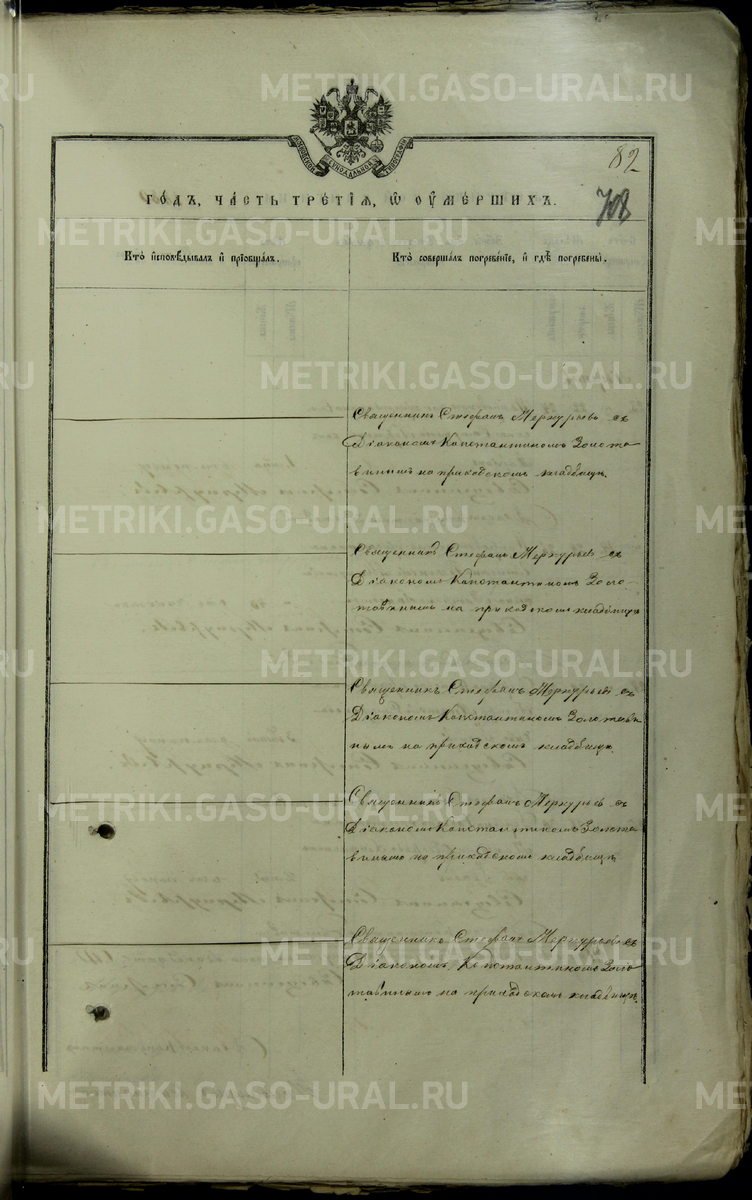 82
708
ГОДЪ, ЧАСТЬ ТРЕТІЯ, Ѡ ОУМЕРШИХЪ.
Кто исповѣдывалъ и пріобщалъ.
Кто совершалъ погребеніе, и гдѣ погребены.
Священникъ Стефанъ Меркурьевъ съ
Діакономъ Константиномъ Золота
винымъ на приходскомъ кладбищѣ.
Священникъ Стефанъ Меркурьевъ съ
Діакономъ Константиномъ Золо
тавинымъ на приходскомъ кладбищѣ
Священникъ Стефанъ Меркурьевъ съ
Діакономъ Константиномъ Золотави
нымъ на приходскомъ кладбищѣ.
Священникъ Стефанъ Меркурьевъ съ
Діакономъ Константиномъ Золота
винымъ на приходскомъ кладбищѣ
Священникъ Стефанъ Меркурьевъ съ
Діакономъ Константиномъ Золо
тавинымъ на приходскомъ кладбищѣ.
METRIKI.GASO-URAL.RU